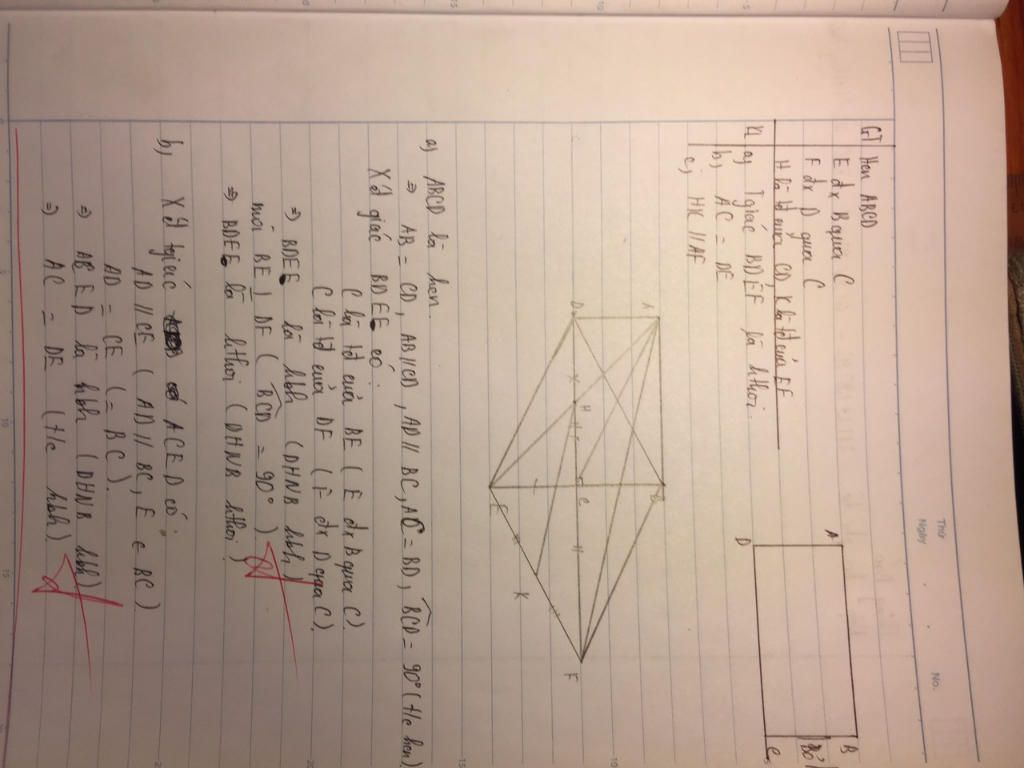 Thứ
Ngày
No.
GT Hcn ABCD
E đx B qua C
F đx D qua C
H là tđ của CD, K là tđ của EF
KL a) Tgiác BDEF là hthoi.
b) AC = DE
c) HK // AF
A
B
D
C
90°
A
B
D
H
C
E
K
F
a) ABCD là hcn.
⇒ AB = CD, AB//CD, AD // BC, AC = BD, BCD = 90° (t/c hcn)
Xét giác BDEF có:
C là tđ của BE (E đx B qua C)
C là tđ của DF (F đx D qua C)
⇒ BDEF là hbh (DHNB hbh)
mà BE ⊥ DF (BCD = 90°)
⇒ BDEF là hthoi (DHNB hthoi)
b) Xét tgiác ACED có:
AD // CE (AD // BC, E ∈ BC)
AD = CE (= BC).
⇒ ACED là hbh (DHNB hbh)
⇒ AC = DE (t/c hbh)